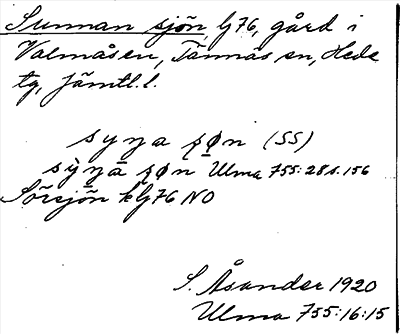 Sunnan sjön, lj76, gård i
Valmåsen, Tännäs sn, Hede
tg, Jämtl. l.
syna ʂøn (SS)
sỳna ʂøn Ulma 755:28 s. 156
Sörsjön k lj76 NO
S. Åsander 1920
Ulma 755:16:15